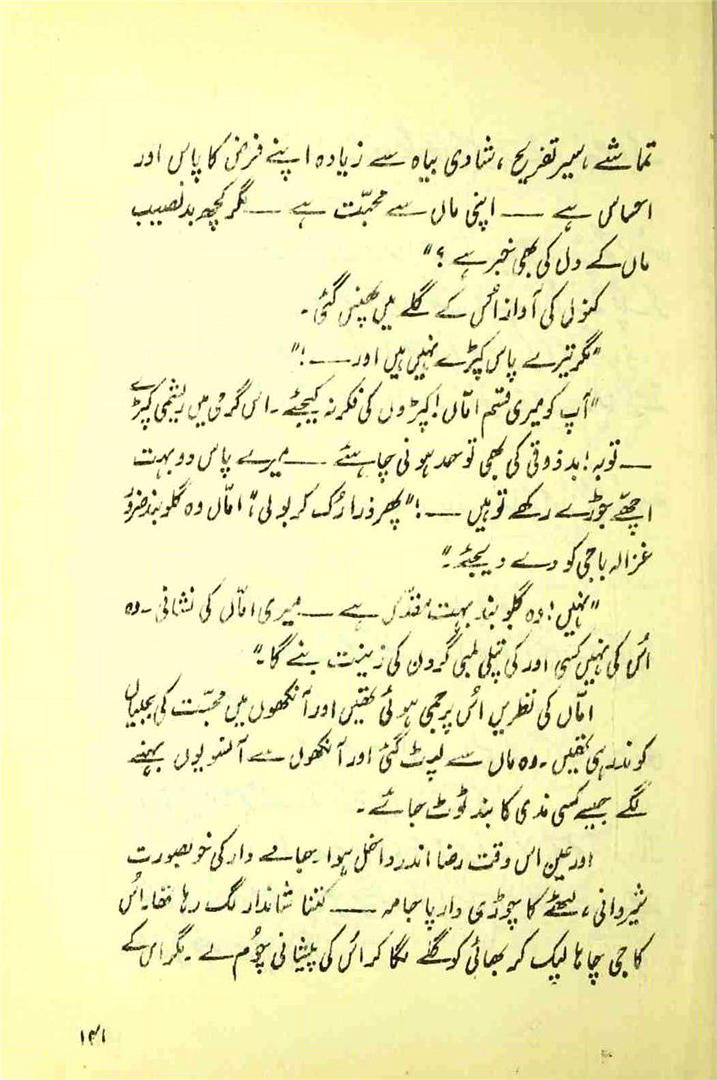 تماشے، سیر تفریح، شادی بیاہ سے زیادہ اپنے فرض کا پاس اور
احساس ہے — اپنی ماں سے محبّت ہے — مگر کچھ بدنصیب
ماں کے دل کی بھی خبر ہے؟"
کنولی کی آواز اُس کے گلے میں پھنس گئی۔
"مگر تیرے پاس کپڑے نہیں ہیں اور —!"
"آپ کو میری قسم امّاں! کپڑوں کی فکر نہ کیجئے۔ اس گرمی میں ریشمی کپڑے
— توبہ! بدذوقی کی بھی تو حد ہونی چاہئے — میرے پاس دو بہت
اچھّے جوڑے رکھے تو ہیں —!" پھر ذرا رُک کر بولی، "امّاں وہ گلوبند ضرور
غزالہ باجی کو دے دیجئے۔"
"نہیں! وہ گلوبند بہت مقدّس ہے — میری امّاں کی نشانی۔ وہ
اُس کی نہیں کسی اور کی پتلی لمبی گردن کی زینت بنے گا۔"
امّاں کی نظریں اُس پر جمی ہوئی تھیں اور آنکھوں میں محبّت کی بجلیاں
کوند رہی تھیں۔ وہ ماں سے لپٹ گئی اور آنکھوں سے آنسو یوں بہنے
لگے جیسے کسی ندی کا بند ٹوٹ جائے۔
اور عین اس وقت رضا اندر داخل ہوا۔ جامے دار کی خوبصورت
شیروانی، لٹھے کا چوڑی دار پاجامہ — کتنا شاندار لگ رہا تھا۔ اُس
کا جی چاہا لپک کر بھائی کو گلے لگا کر اُس کی پیشانی چوُم لے۔ مگر اس کے
۱۴۱